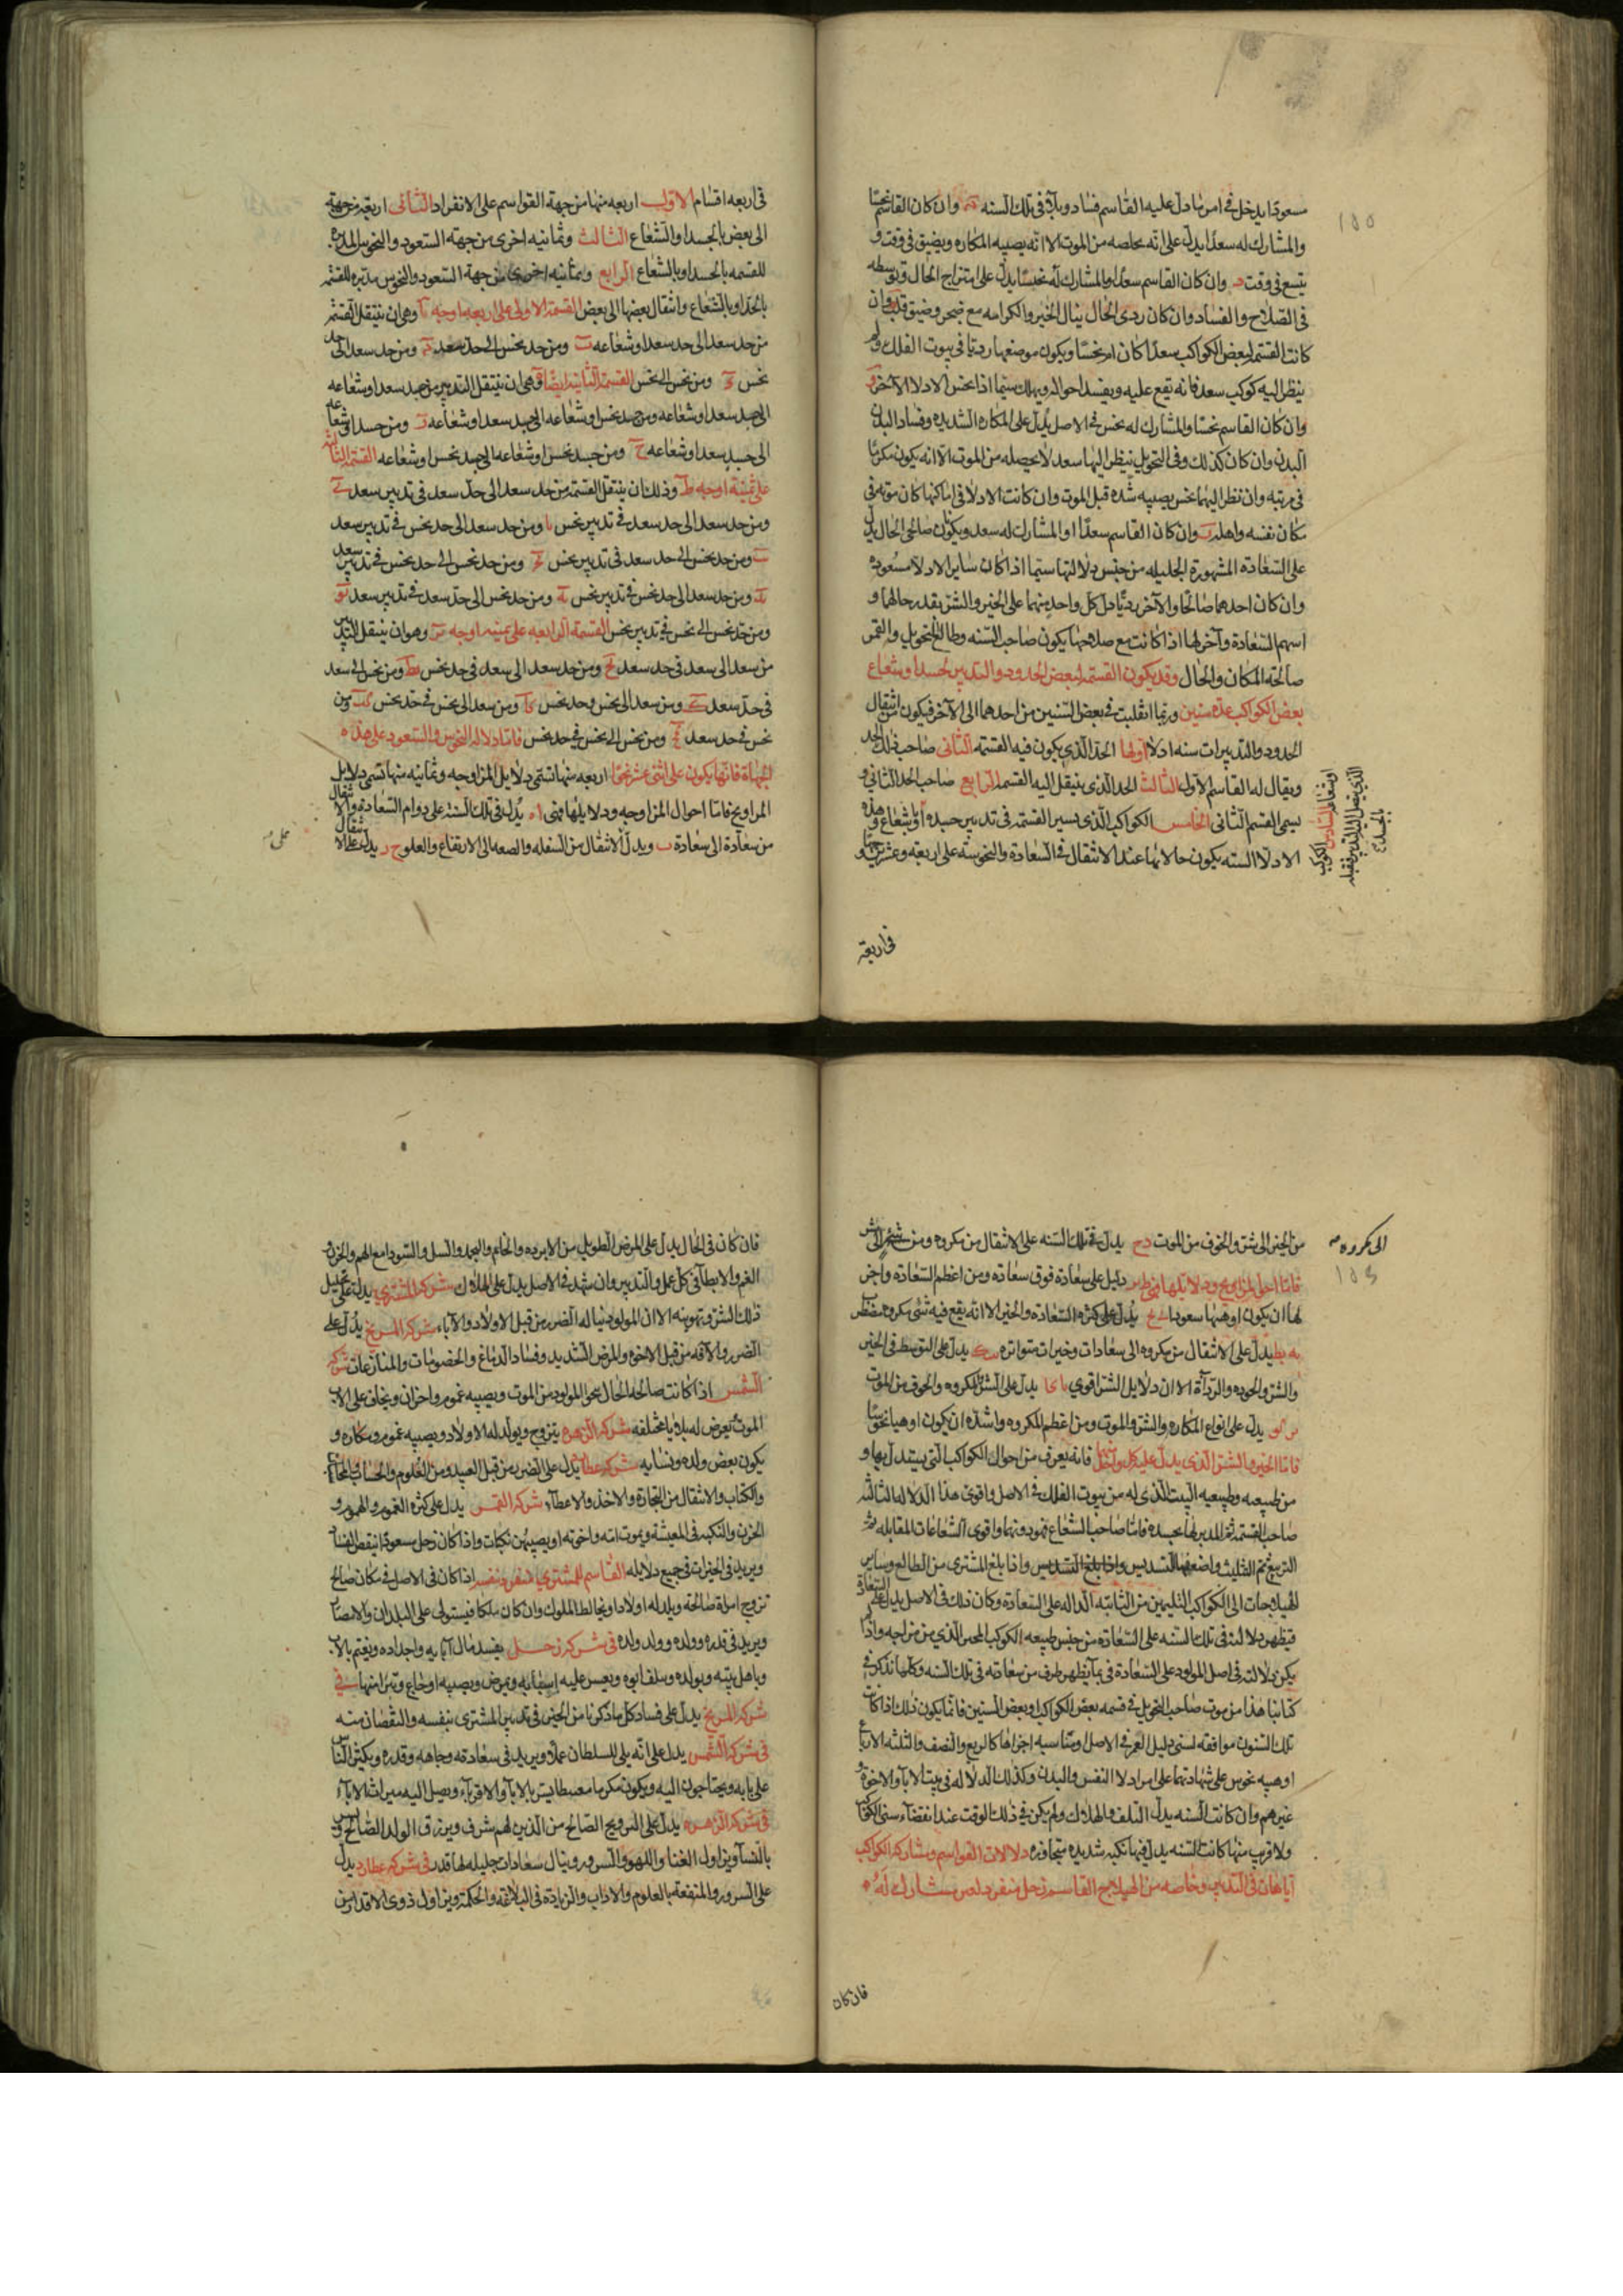 مسعودا يدخل في امر ما دل عليه القاسم فساد وبلاء في تلك السنه وان كان القاسم نحسا
والمشارك له سعدا يدل على انه يخلصه من الموت الا انه يصيبه المكاره ويضيق في وقت و
يتسع في وقت وان كان القاسم سعدا والمشارك له نحسا يدل على امتزاج الحال وتوسطه
في الصلاح والفساد وان كان ردى الحال ينال الخير والكرامه مع ضجر وضيق قلب وان
كانت القسمه لبعض الكواكب سعدا كان او نحسا ويكون موضعها رديا في بيوت الفلك ولم
ينظر اليه كوكب سعد فانه يقع عليه ويفسد احواله ويهلك سيما اذا نحس الادلا الآخر
وان كان القاسم نحسا والمشارك له نحس في الاصل يدل على المكاره الشديده وفساد البدن
البدن وان كان كذلك وفي التحويل ينظر اليها سعد لا يحصله من الموت الا انه يكون مكرما
في مرتبه وان نظر اليهما نحس يصيبه شده قبل الموت وان كانت الادلا في اماكنها كان موته في
مكان نفسه واهله وان كان القاسم سعدا او المشارك له سعد ويكونان صالحى الحال يدل
على السعادة المشهورة الجليله من جنس دلالتها سيما اذا كان ساير الادلا مسعوده
وان كان احدهما صالحا والآخر رديا دل كل واحد منهما على الخير والشر بقدر حالهما و
اسهم السعادة وآخرها اذا كانت مع صلاحها يكون صاحب السنه وطالع التحويل والقمر
صالحة المكان والحال وقد يكون القسمه لبعض الحدود والتدبير لجسد او شعاع
بعض الكواكب عده سنين وربما انقلبت في بعض السنين من احدهما الى الآخر فيكون من انتقال
الحدود والتدبيرات سته ادلا اولها الحد الذي يكون فيه القسمه الثاني صاحب ذلك الحد
ويقال له القاسم الاول الثالث الحد الذي ينتقل اليه القسمه الرابع صاحب الحد الثاني و
يسمى القسيم الثاني الخامس الكواكب الذي يسير القسمه في تدبير جسده او شعاعه وهذه
الادلا السته يكون حالاتها عند الانتقال في السعادة والنحوسة على اربعة وعشرين
او شعاعه السادس الكوكب
الذي ينتقل اليه التدبير فيقبله
بالجسد
في اربعة
في اربعه اقسام الاول اربعه منها من جهة القواسم على الانفراد الثاني اربعة من جهة
الى بعض بالجسد او الشعاع الثالث وثمانيه اخرى من جهة السعود والنحوس المدبره
للقسمه بالجسد او بالشعاع الرابع وثمانيه اخرى من جهة السعود والنحوس مدبره للقسمه
بالحد او بالشعاع وانتقال بعضها الى بعض القسمه الاولى على اربعه اوجه وهي ان ينتقل القسمه
من حد سعد الى حد سعد او شعاعه ومن حد نحس الى حد سعد ومن حد سعد الى حد
نحس ومن نحس الى نحس القسمه الثانيه ايضا هي ان ينتقل التدبير من جسد سعد او شعاعه
الى جسد سعد او شعاعه ومن جسد نحس او شعاعه الى جسد سعد او شعاعه ومن جسد او شعاعه
الى جسد سعد او شعاعه ومن جسد نحس او شعاعه الى جسد نحس او شعاعه القسمه الثالثه
على ثمنية اوجه وذلك ان ينتقل القسمه من حد سعد الى حد سعد في تدبير سعد
ومن حد سعد الى حد سعد في تدبير نحس ومن حد سعد الى حد نحس في تدبير سعد
ومن حد نحس الى حد سعد في تدبير نحس ومن حد نحس الى حد نحس في تدبير سعد
ومن حد سعد الى حد نحس في تدبير نحس ومن حد نحس الى حد سعد في تدبير سعد
ومن حد نحس الى نحس في تدبير نحس القسمة الرابعه على ثمنيه اوجه وهو ان ينتقل التدبير
من سعد الى سعد في حد سعد ومن حد سعد الى سعد في حد نحس ومن نحس الى سعد
في حد سعد ومن سعد الى نحس وحد نحس ومن سعد الى نحس في حد نحس ومن
نحس في حد سعد ومن نحس الى نحس في حد نحس فاما دلاله النحوس والسعود على هذه
الجهاة فانها يكون على اثنى عشر نحوا اربعه منها تسمى دلايل المزاوجه وثمانيه منها تسمى دلايل
المراويح فاما احوال المزاوجه ودلايلها فمتى اه يدل في تلك السنه على دوام السعادة والانتقال
من سعادة الى سعادة ب ويدل الانتقال من السفله والضعه الى الارتفاع والعلو ج يدل على الانتقال
من الخير الى شر والخوف من الموت يدل في تلك السنه على الانتقال من مكروه ومن شر الى شر
الى مكروه
فاما احوال المراويح ودلايلها فمتى دليل على سعادة فوق سعادة ومن اعظم السعادة واخر
لها ان يكون اوهنها سعودا يدل على كثره السعادة والخير الا انه يقع فيه شئ مكروه مضطرب
يدل على الانتقال من مكروه الى سعادات وخيرات متواتره يدل على التوسط في الخير
والشر والجوده والرداة الا ان دلايل الشر اقوى يدل على الشر المكروه والخوف من الموت
يدل على انواع المكاره والشر والموت ومن اعظم المكروه واشده ان يكون اوهيا نحوسا
فاما الخير والشر الذي يدل عليه كل واحد منها فانه يعرف من احوال الكواكب التي يستدل بها و
من طبيعه وطبيعيه البيت الذي له من بيوت الفلك في الاصل واقوى هذا الدلاله الثالثه
صاحب القسمه ثم المدبر لها بجسده فاما صاحب الشعاع فهو دونهما واقوى الشعاعات المقابله ثم
التربيع ثم التثليث واضعفها التسديس واذا بلغ المشترى من الطالع وساير
الهيلاجات الى الكواكب الثليمين من الثابته الداله على السعادة وكان ذلك في الاصل يدل على السعادة
فيظهر دلالته في تلك السنه على السعادة من جنس طبيعه الكوكب المحبس الذي من مزاجه واذا لم
يكن دلالته في اصل المولود على السعادة فربما يظهر طرف من سعادته في تلك السنه وكلما نذكره في
كتابنا هذا من موت صاحب التحويل في قسمه بعض الكواكب او بعض السنين فانما يكون ذلك اذا كانت
تلك السنون موافقه لسنى دليل العمر في الاصل او مناسبه اجزاها كالربع والنصف والثلثه الارباع
او هيه نحوس على شهادتهما على امر ادلا النفس والبدن وكذلك الدلاله في بيت الابآ والاخوة و
غيرهم وان كانت السنه يدل التلف والهلاك ولم يكن في ذلك الوقت عند انقضآء سنى الكواكب
ولا قرب منها كانت السنه يدل فيها نكبه شديده متجاوزه دلالات القواسم ومشاركه الكواكب
اياها في التدبير وخاصه من الهيلاج القاسم زحل منفرد ليس مشارك له
فان كان
فان كان في الحال يدل على المرض الطويل من الابرده والخام والبعد والسل والسودا مع الهم والحزن و
الغم والابطآء في كل عمل والتدبير وان شهد في الاصل يدل على الهلاك شركه المشترى يدل على تحليل
ذلك الشر وتهوينه الا ان المولود ينال الضرر من قبل الاولاد والآباء شركه المريخ يدل على
الضرر والآفه من قبل الاخوة والمرض الشديد وفساد الدماغ والخصومات والمنازعات شركه
الشمس اذا كانت صالحه الحال نجو المولود من الموت ويصيبه غموم واحزان ويخاف على الاب
الموت يعرض له بلايا مختلفه شركه الزهره يتزوج ويولد له الاولاد ويصيبه غموم ومكاره و
يكون بعض ولده ونسايه شركه عطارد يدل على الضرر من قبل العبيد ومن العلوم والحساب
والكتاب والانتقال من التجارة والاخذ والاعطآء شركه القمر يدل على كثره الغموم والهموم و
الحزن والنكبه في المعيشة ويموت امه واخوته او يصيبهن نكبات واذا كان زحل مسعودا ينقص الفساد
ويزيد في الخيرات في جميع دلايله القاسم المشترى منفرد بنفسه اذا كان في الاصل في مكان صالح
تزوج امراة صالحة ويلد له اولادا ويخالط الملوك وان كان ملكا فيستولى على البلدان والامصار
ويزيد في قدره وولده وولد ولده في شركه زحل يفسد مال آبايه واجداده ويغتم بالاب
وباهل بيته وبولده وسلف ابوه ويعسر عليه اسبابه ويمرض ويصيبه اوجاع وتبرا منها في
شركه المريخ يدل على فساد كل ما ذكرنا من الخير في تدبير المشترى بنفسه والنقصان منه
في شركه الشمس يدل على انه يلي للسلطان عملا ويزيد في سعادته وجاهه وقدره ويكثر الناس
على بابه ويحتاجون اليه ويكون مكرما مغتبطا يسر بالابآ والاقربآء ويصل اليه ميراث الآبآء
في شركه الزهره يدل على التزويج الصالح من الذين لهم شرف ويرزق الولد الصالح و
بالنسآ ويزاول الغنا واللهو والسرور وينال سعادات جليله لها قدر في شركه عطارد يدل
على السرور والمنفعة بالعلوم والاداب والزيادة في البلاغه والحكمة ويزاول ذوى الاقدار من